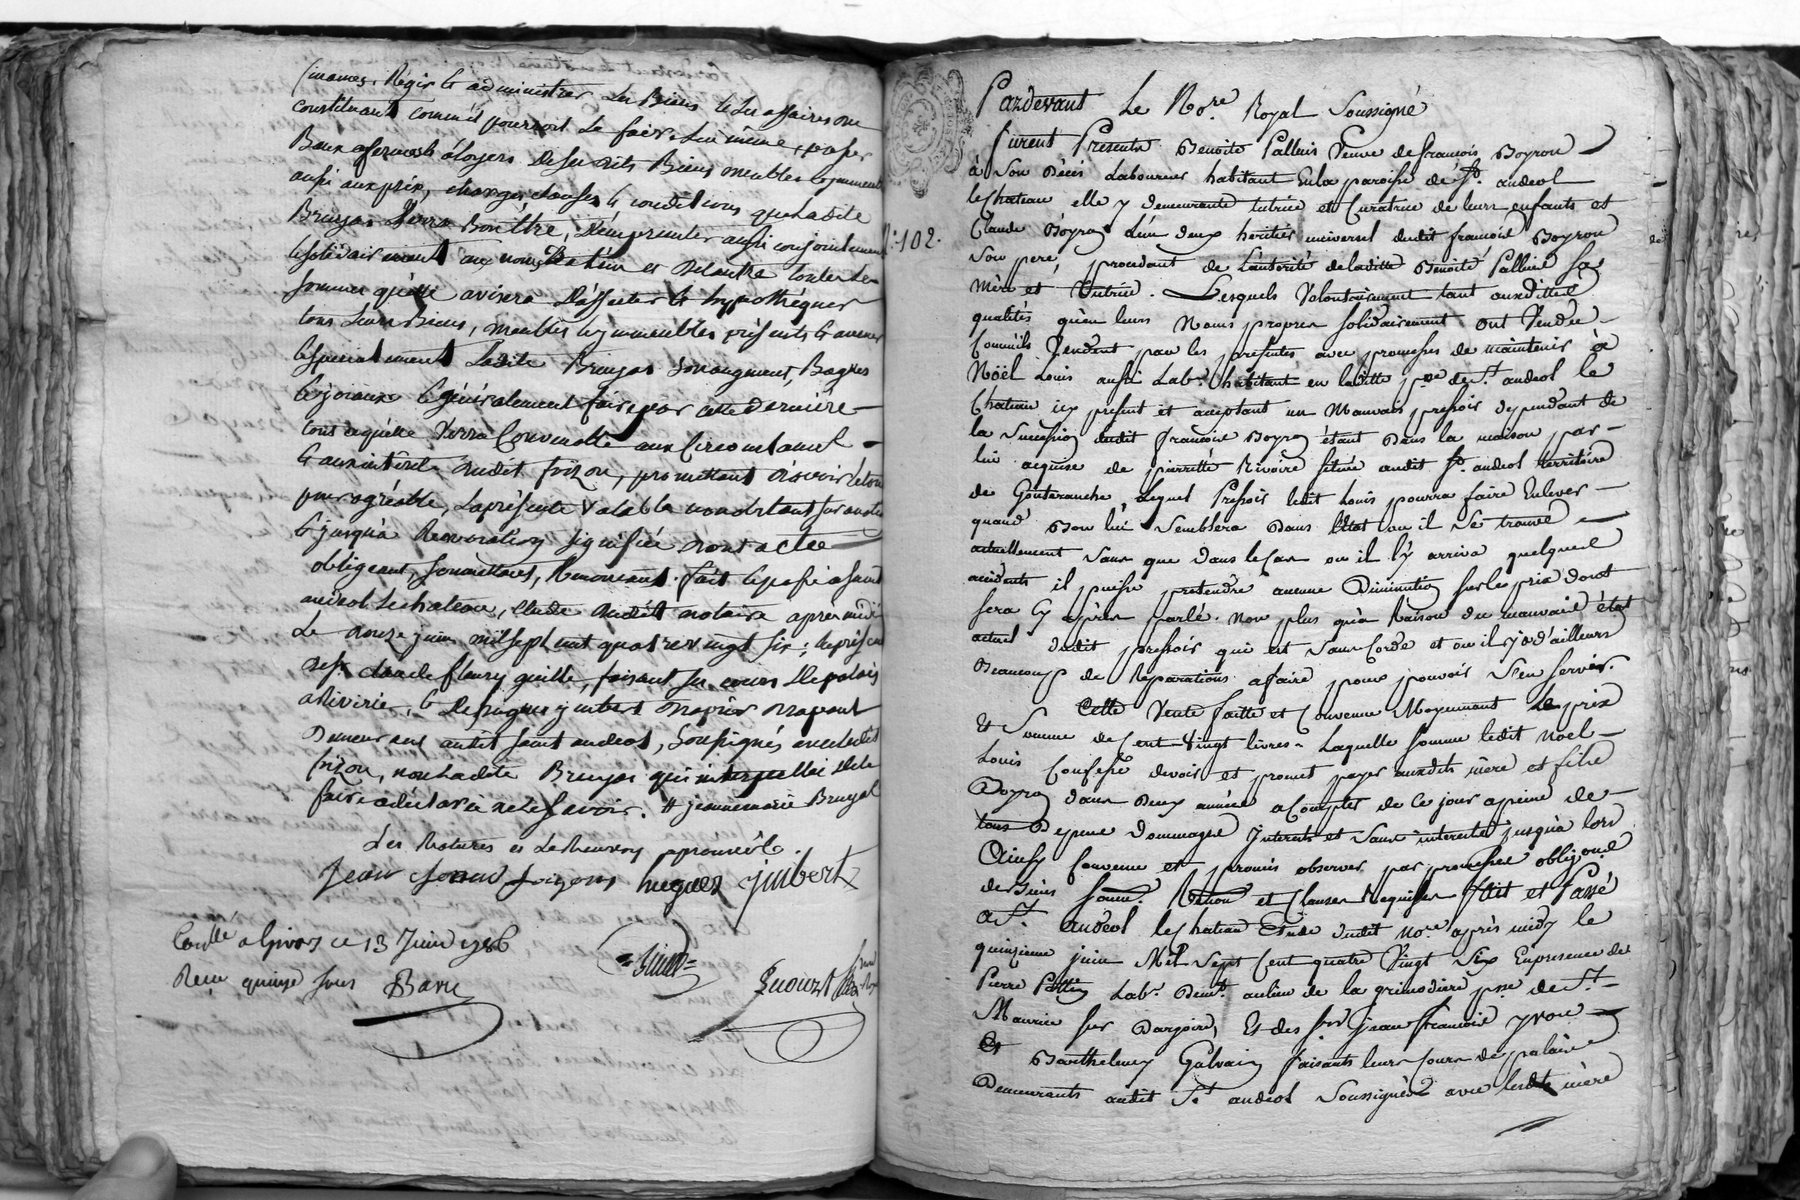 Régir & administrer les Biens & les affaires du
constituant comme il pourroit le faire lui même, passer
Baux afermes & à loyers de ses dits Biens meubles & immeubles
aussi aux prix, charges, clauses & conditions que ladite
Brinjas verra Bon Etre, d'Emprunter aussi conjointement
& solidairement aux noms de lui et d'elle toutes les
sommes quelle avisera d'affecter & hypothequer
tous leurs Biens, meubles & immeubles présents & avenir
& specialement ladite son augment, Bagues
& joiaux & généralement faire par cette dernière
tout ce quelle verra Convenable aux Circonstances
& aux intérêts dudit frizon, promettant d'avoir le tout
pour agréable, la présente valable nonobstant surannée
& jusqu'à Revocation signifiée dont acte
obligeant, soumettant, Renonçant. fait & passé a saint
andeol le chateau, Etude dudit notaire après midi
Le onze juin mil sept cent quatre vingt six ; En présence
de claude fleury faisant ses cours de palais
a Rivirie, &
Demeurant audit saint andeol, Soussignés avec ledit
frizon, non ladite qui interpellée de le
faire a déclaré ne le savoir. # jeanne marie
hugues jmbert
Conllé a Givors ce 13 Juin 1786
Reçu quinze sous
102.
Pardevant Le No.re Royal Soussigné
furent Presents Benoite Pallieis Veuve de francois Boyron
à Son Décès Laboureur habitant En la paroisse de St. andeol
le chateau elle y demeurante tutrice et Curatrice de leurs enfants et
Claude Boyron L'un deux heritier universel dudit francois Boyron
Son pere, procedant de l'autorité de ladite Benoite Pallieis sa
mère et tutrice. Lesquels Volontairement tant auxdittes
qualités qu'en leurs Noms propres solidairement ont Vendu
Comm'ils Vendent par les presentes avec promesses de maintenir à
Nöel Louis aussi Lab.r habitant en laditte p.sse de St. andeol le
Chateau icy présent et aceptant un Mauvais pressoir dependant de
la Succession dudit francois Boyron étant Dans la maison par
lui acquise de pierrette Rivoire située audit St. andeol territoire
de Goutéranche, Lequel Pressoir ledit Louis pourra faire Enlever
quand Bon lui Semblera Dans l'état ou il se trouve
actuellement Sans que dans le Cas ou il ly arriva quelques
accidents il puisse pretendre aucune Diminution sur le prix dont
sera Cy après parlé. Non plus qu'à Raison du mauvais état
actuel dudit pressoir qui est Sans Corde et ou il y a d'ailleurs
Beaucoup de Réparations a faire pour pouvoir s'en servir.
Cette Vente faitte et Convenue Moyennant le prix
et Somme de Cent-Vingt livres. Laquelle somme ledit Noel
Louis Confesse devoir et promet payer auxdits mère et fils
Boyron dans Deux années a Compter de Ce jour a peine de
tous Depens Dommages Interets et Sans interets jusqu'à lors
Ainsy Convenu et promis observer par promesses oblig.ons
de Biens Soum. Renon et Clauses Requises fait et Passé
a St. andeol le chateau Etude dudit No.re après midy le
quinzieme juin Mil Sept Cent quatre Vingt Six En presence de
Pierre Lab.r Dem.t au lieu de la grimodiere p.sse de St.
Maurice sur Dargoire, Et des S.rs jean francois yvon
et Barthelemy Galvain faisants leurs cours de palais
Demeurants audit St. andeol Soussignés avec lesdits mère